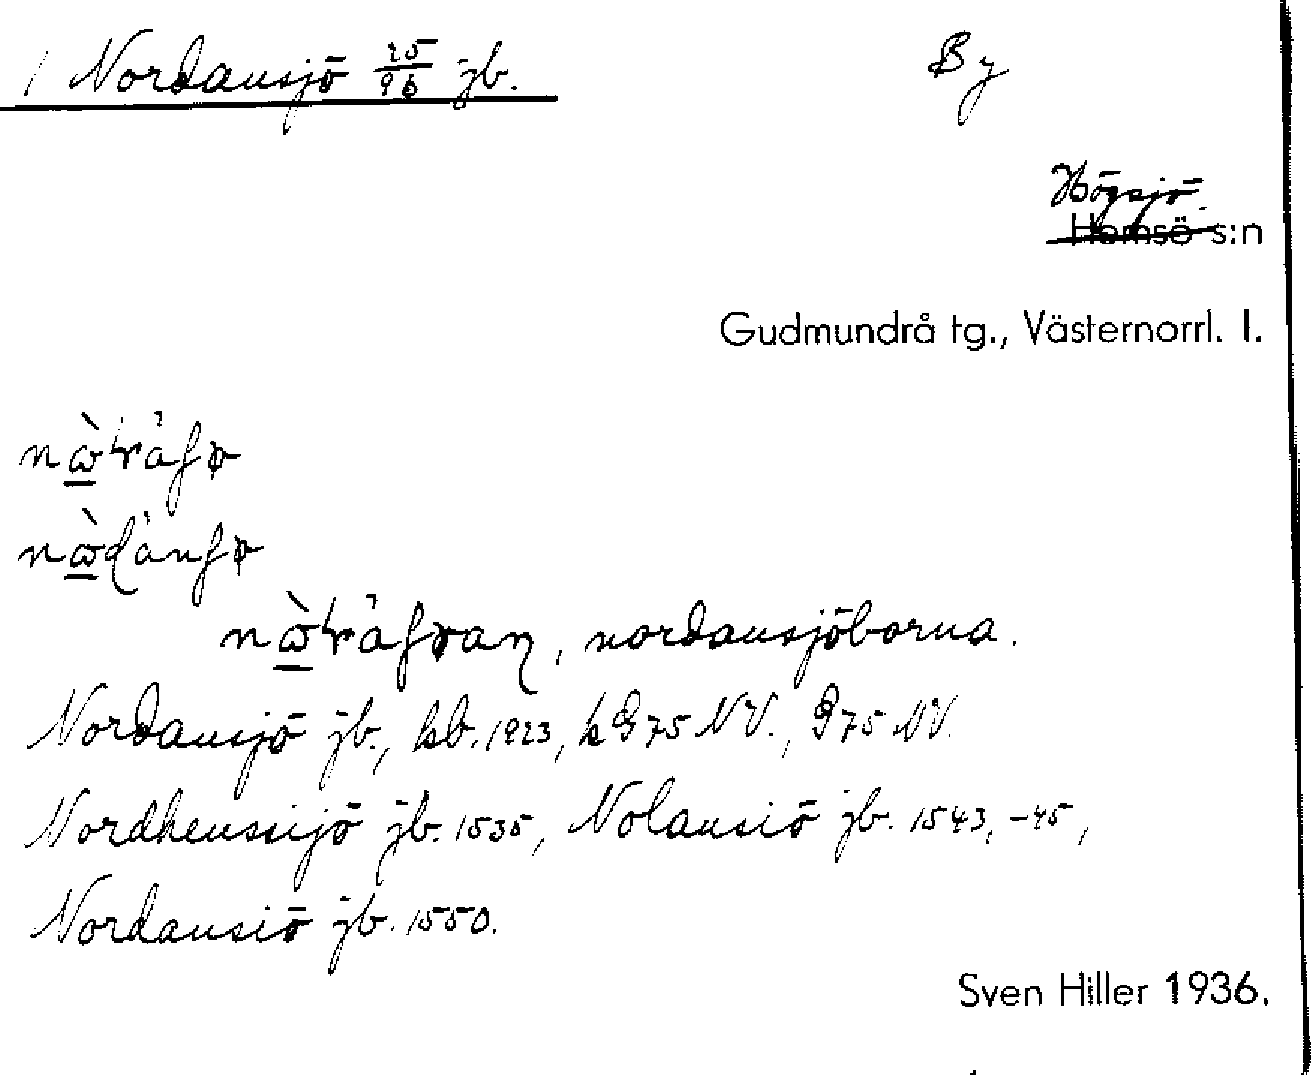 1 Nordansjö 25/96 jb. By
Högsjö
Hemsö s:n
Gudmundrå tg., Västernorrl. l.
nordansjöborna.
Nordansjö jb., kb. 1923, k G 75 NV., G 75 NV.
Nordhenssijö jb. 1535, Nolansiö jb. 1543, -45,
Nordansiö jb. 1550.
Sven Hiller 1936.